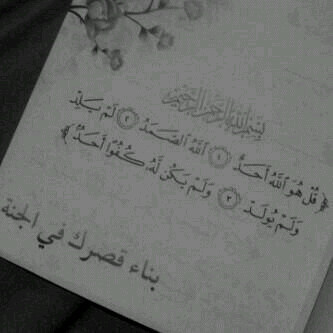 بسم الله الرحمن الرحيم
﴿ قُلْ هُوَ ٱللَّهُ أَحَدٌ ١ ٱللَّهُ ٱلصَّمَدُ ٢ لَمْ يَلِدْ
وَلَمْ يُولَدْ ٣ وَلَمْ يَكُن لَّهُۥ كُفُوًا أَحَدٌۢ ﴾
بناء قصرك في الجنة